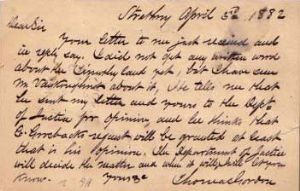 Strathroy April 5th 1882
Dear Sir
Your letter to me just received and
in reply say I did not get any written word
about the land yet, but I have seen
Mr about it, He tells me that
he sent my letter and yours to the Dept
of Justice for opinion, and he thinks that
request will be granted at least
that is his opinion. The Department of Justice
will decide the matter and when it will let you
know. Yours
Thomas Gordon